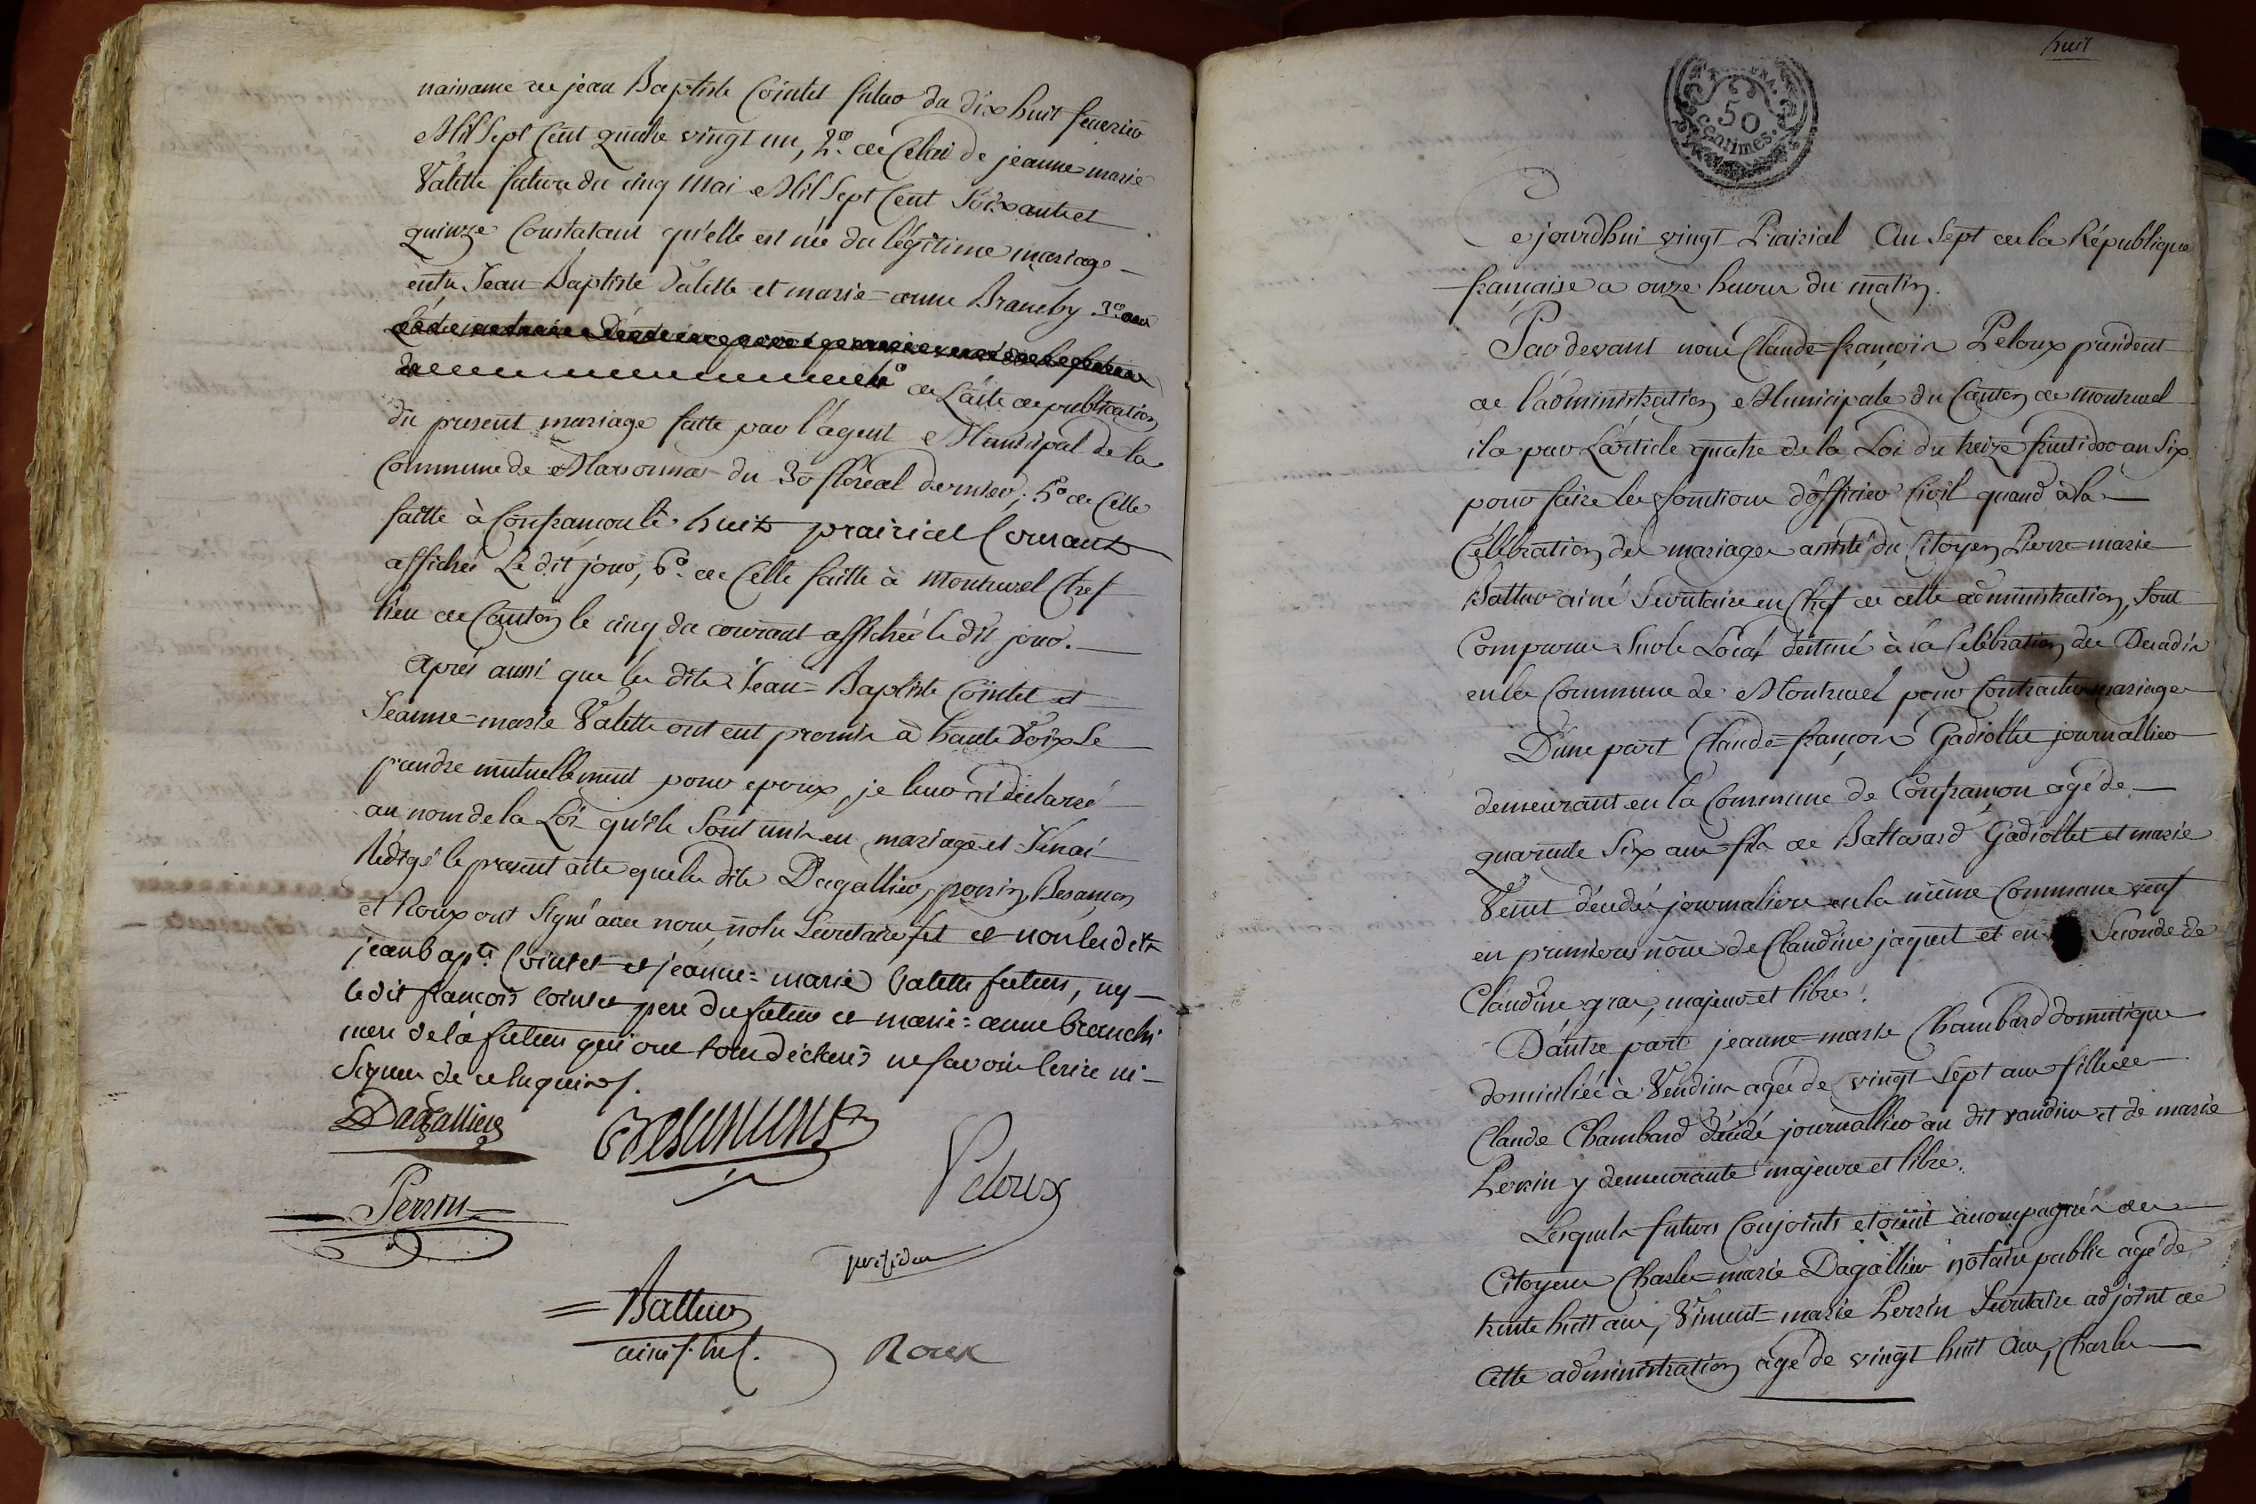 naissance de jean Baptiste Cointet futur du dix huit fevrier
Mil Sept Cent quatre vingt un, 2º. de Celui de jeanne marie
Valette future du cinq Mai Mil Sept Cent Soixante et
quinze Constatant qu'elle est née du légitime mariage
entre Jean Baptiste Valette et marie=anne Branchy 3º.
4º de L'acte de publication
du present mariage faitte par l'agent Municipal de la
Commune de Marsonnas du 30 floréal dernier, 5º de Celle
faitte à Confrançon le huit prairial Courant
affichée Le dit jour, 6º. de Celle faitte à Montrevel Chef
lieu de Canton le cinq du courant affichée le dit jour.
Après aussi que les dits Jean=Baptiste Cointet et
Jeanne=marie Valette ont eut promis à haute Voix Se
prandre mutuellement pour epoux, je leur ai déclaré
au nom de la Loi qu'ils Sont unis en mariage et J'enai
Rédigé le present acte que les dits Dagallier, perrin, Besançon
et Roux ont Signé avec nous, notre Secretaire et non les dits
jean bapte. Cointet et jeanne=marie Valette futurs, ny
ledit françois Cointet pere du futur et marie=anne branchi
mere de la future qui ont tous déclarés ne savoir Ecrire ni
Signer de ce Requis.
Dagallier
Besançons
Perrin
Peloux
président
Battur
ainé
Roux
huit
50
centimes.
Cejourdhui vingt Prairial An Sept de la République
française a onze heures du matin.
Par devant nous Claude=françois Peloux président
de l'administration Municipale du Canton de Montrevel
élu par L'article quatre de la Loi du treize fructidor an Six
pour faire les fonctions d'officier Civil quand à la
Célébration des mariages assisté du Citoyen Pierre=marie
Battur ainé Secretaire en Chef de cette administration, Sont
Comparus Sur le Local destiné à la Célébration des Decadis
en la Commune de Montrevel pour Contracter mariage
D'une part Claude=françois Gadiollet journallier
demeurant en la Commune de Confrançon agé de
quarante Six ans fils de Baltazard Gadiollet et marie
Venet décédés journaliers en la même Commune veuf
en premieres nôces de Claudine jaquet et en Seconde de
Claudine gras, majeur et libre.
D'autre part jeanne=marie Chambard domestique
domiciliée à Vendins agée de vingt Sept ans fille de
Claude Chambard décédé journallier au dit vandins et de marie
Perrin y demeurante majeure et libre.
Lesquels futurs Conjoints etoient accompagnés des
Citoyens Charles=marie Dagallier notaire public agé de
trente huit ans, Vincent=marie Perrin Secretaire adjoint de
Cette administration agé de vingt huit Ans, Charles